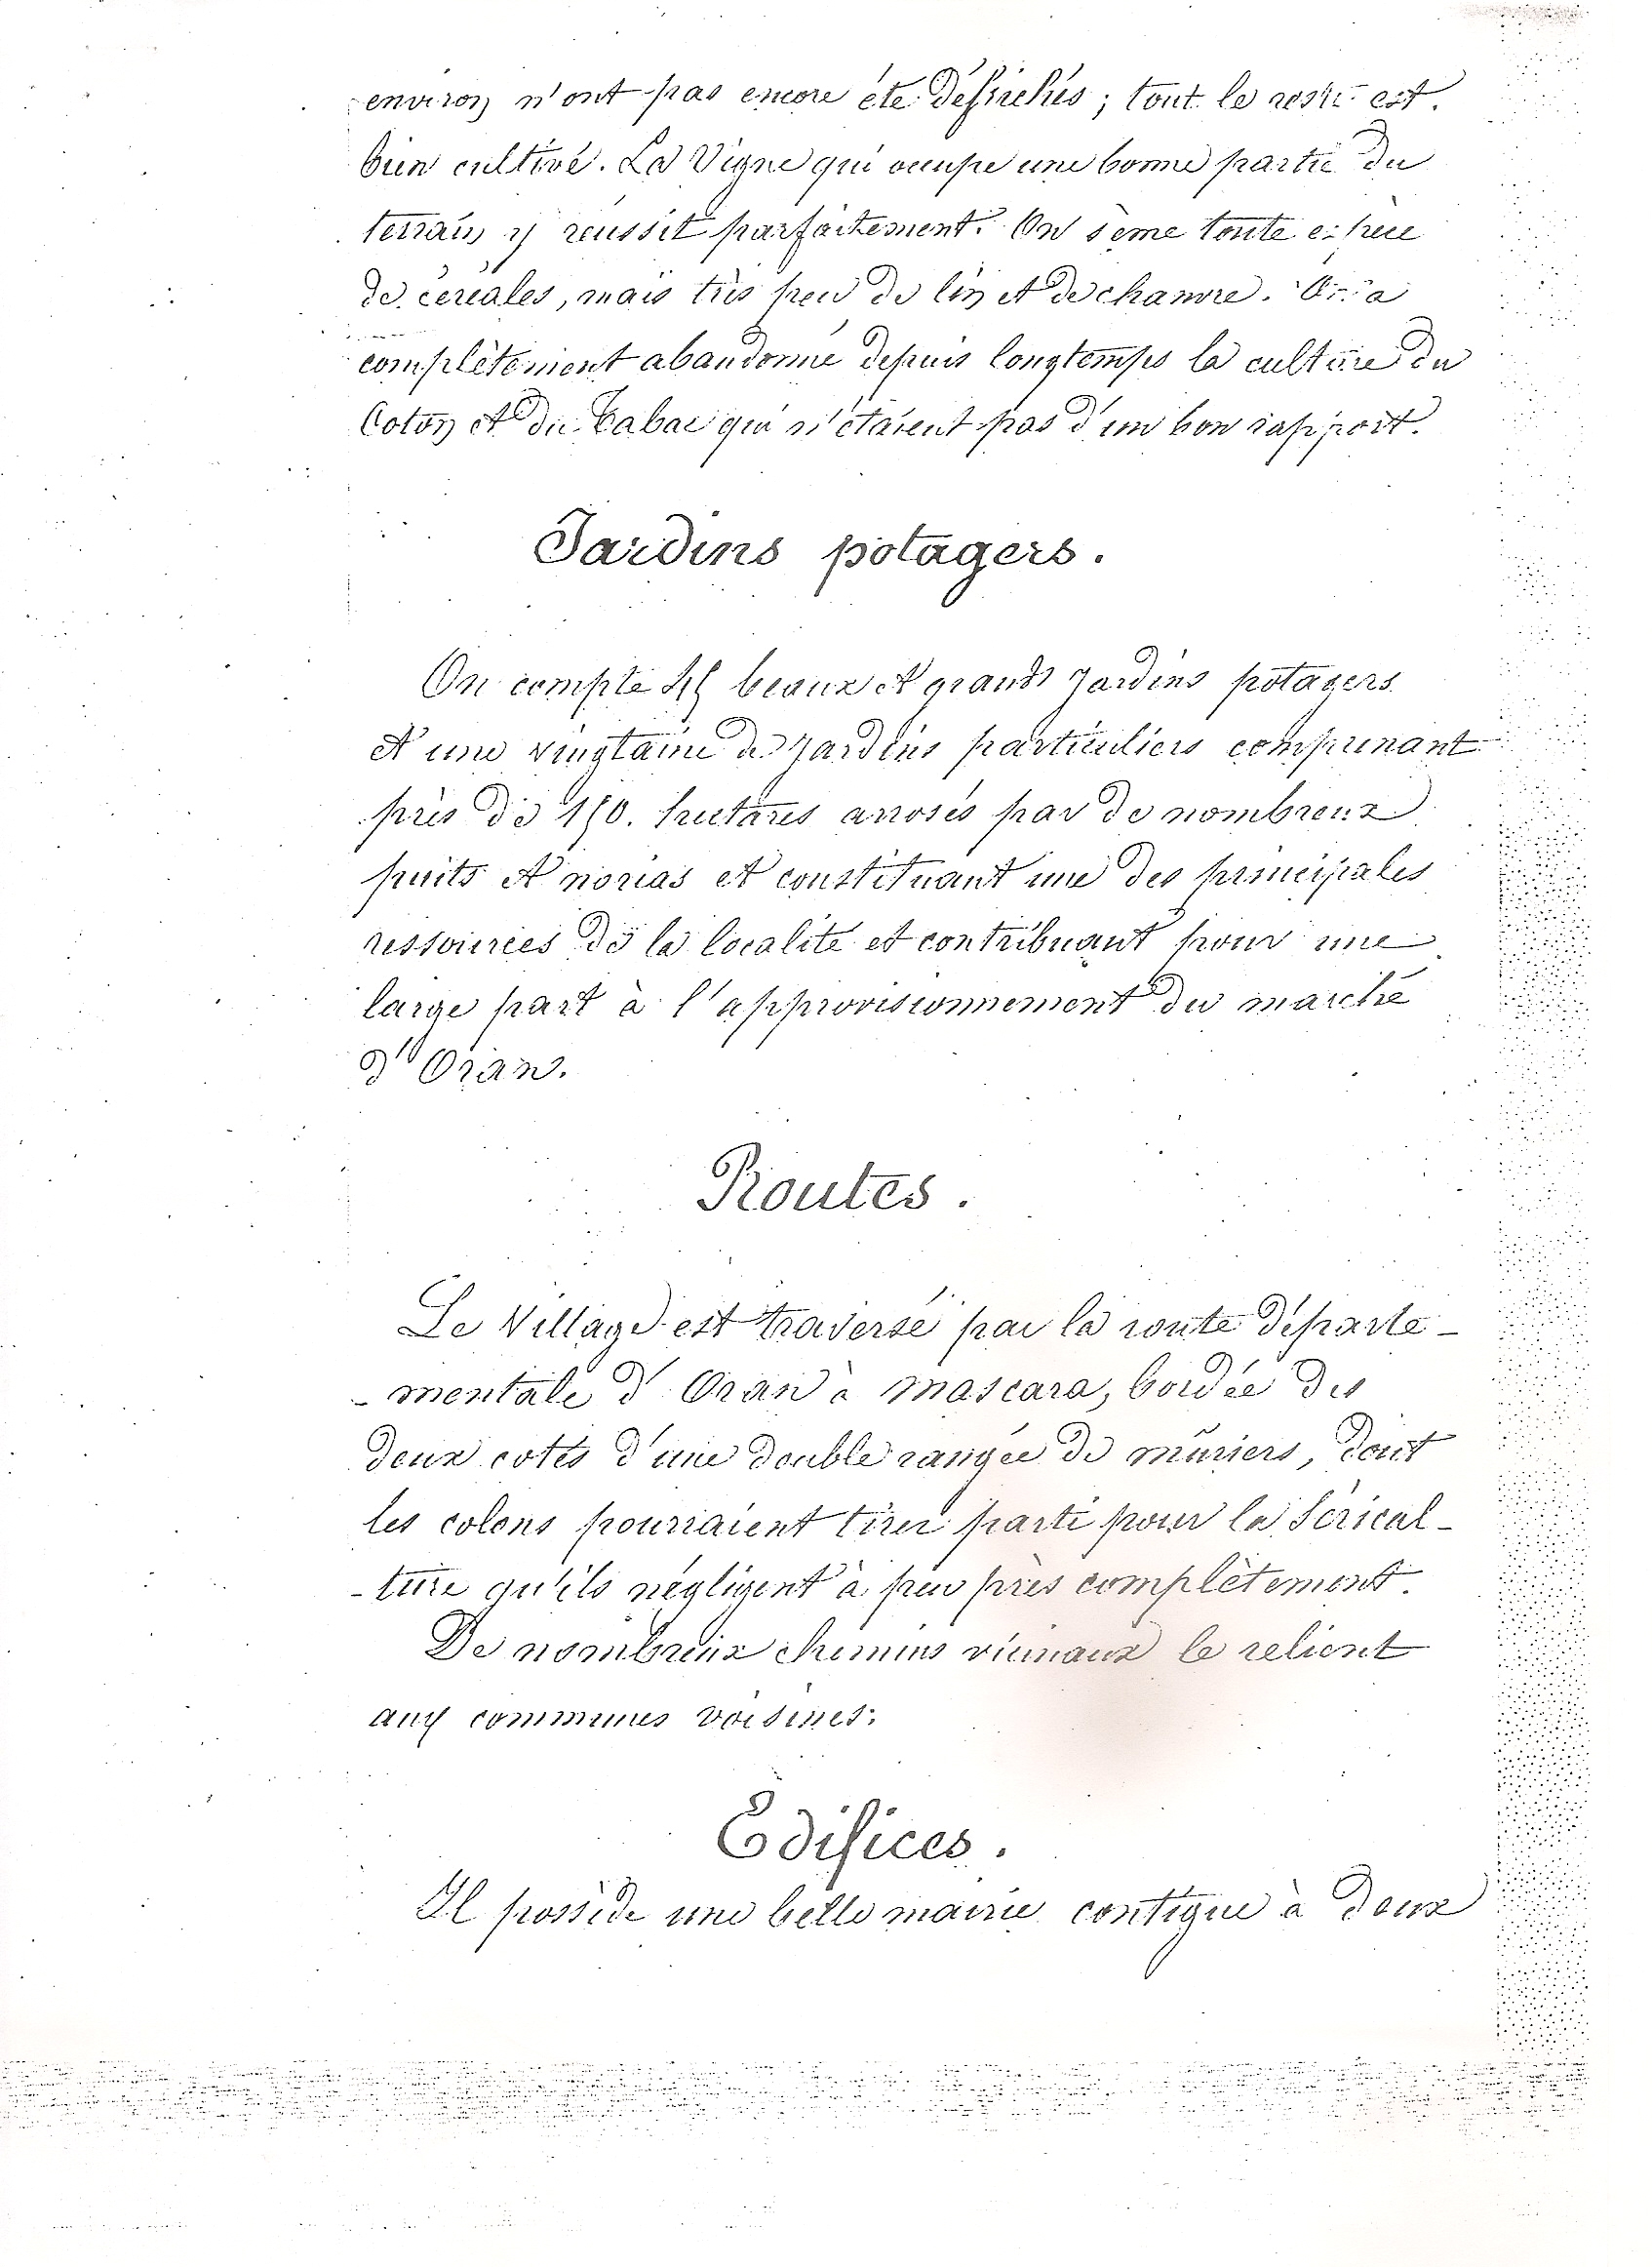 environ n'ont pas encore été défrichés ; tout le reste est
bien cultivé. La Vigne qui occupe une bonne partie du
terrain y réussit parfaitement. On sème toute espèce
de céréales, mais très peu de lin et de chanvre. On a
complètement abandonné depuis longtemps la culture du
Coton et du Tabac qui n'étaient pas d'un bon rapport.
Jardins potagers.
On compte beaux et grands jardins potagers
et une vingtaine de jardins particuliers comprenant
près de 150. hectares arrosés par de nombreux
puits et norias et constituant une des principales
ressources de la localité et contribuant pour une
large part à l'approvisionnement du marché
d'Oran.
Routes.
Le Village est traversé par la route départe-
-mentale d'Oran à Mascara, bordée des
deux cotés d'une double rangée de mûriers, dont
les colons pourraient tirer parti pour la Sérical-
-ture qu'ils négligent à peu près complètement.
De nombreux chemins vicinaux le relient
aux communes voisines.
Edifices.
Il possède une belle mairie contigue à deux